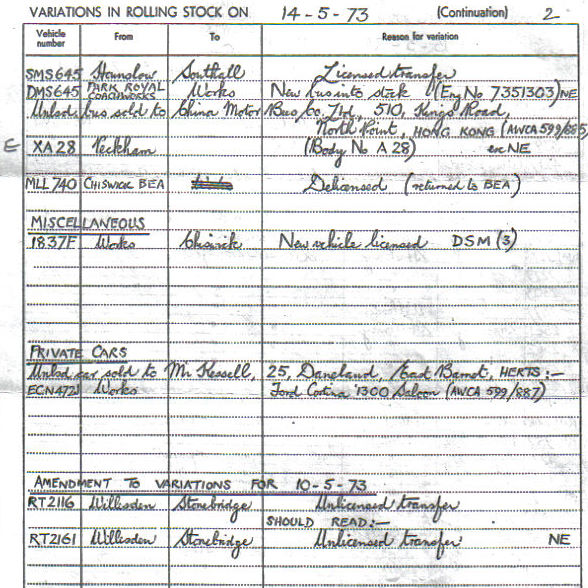 VARIATIONS IN ROLLING STOCK ON 14-5-73 (Continuation) 2
Vehicle number From To Reason for variation
SMS645 Hounslow Southall Licensed transfer
DMS645 PARK ROYAL COACHWORKS Works New bus into stock (Eng No 7351303) NE
Unlsd. bus sold to China Motor Bus Co. Ltd., 510, Kings Road,
North Point, HONG KONG (AWCA 599/885
E XA28 Peckham (Body No A 28) ex NE
MLL740 CHISWICK BEA Works Delicensed (returned to BEA)
MISCELLANEOUS
1837F Works Chiswick New vehicle licensed DSM (3)
PRIVATE CARS
Unlsd. car sold to Mr. Kessell, 25, Daneland, East Barnet, HERTS:-
Works Ford Cortina 1300 Saloon (AWCA 599/887)
AMENDMENT TO VARIATIONS FOR 10-5-73
RT2116 Willesden Stonebridge Unlicensed transfer
SHOULD READ:-
RT2161 Willesden Stonebridge Unlicensed transfer NE